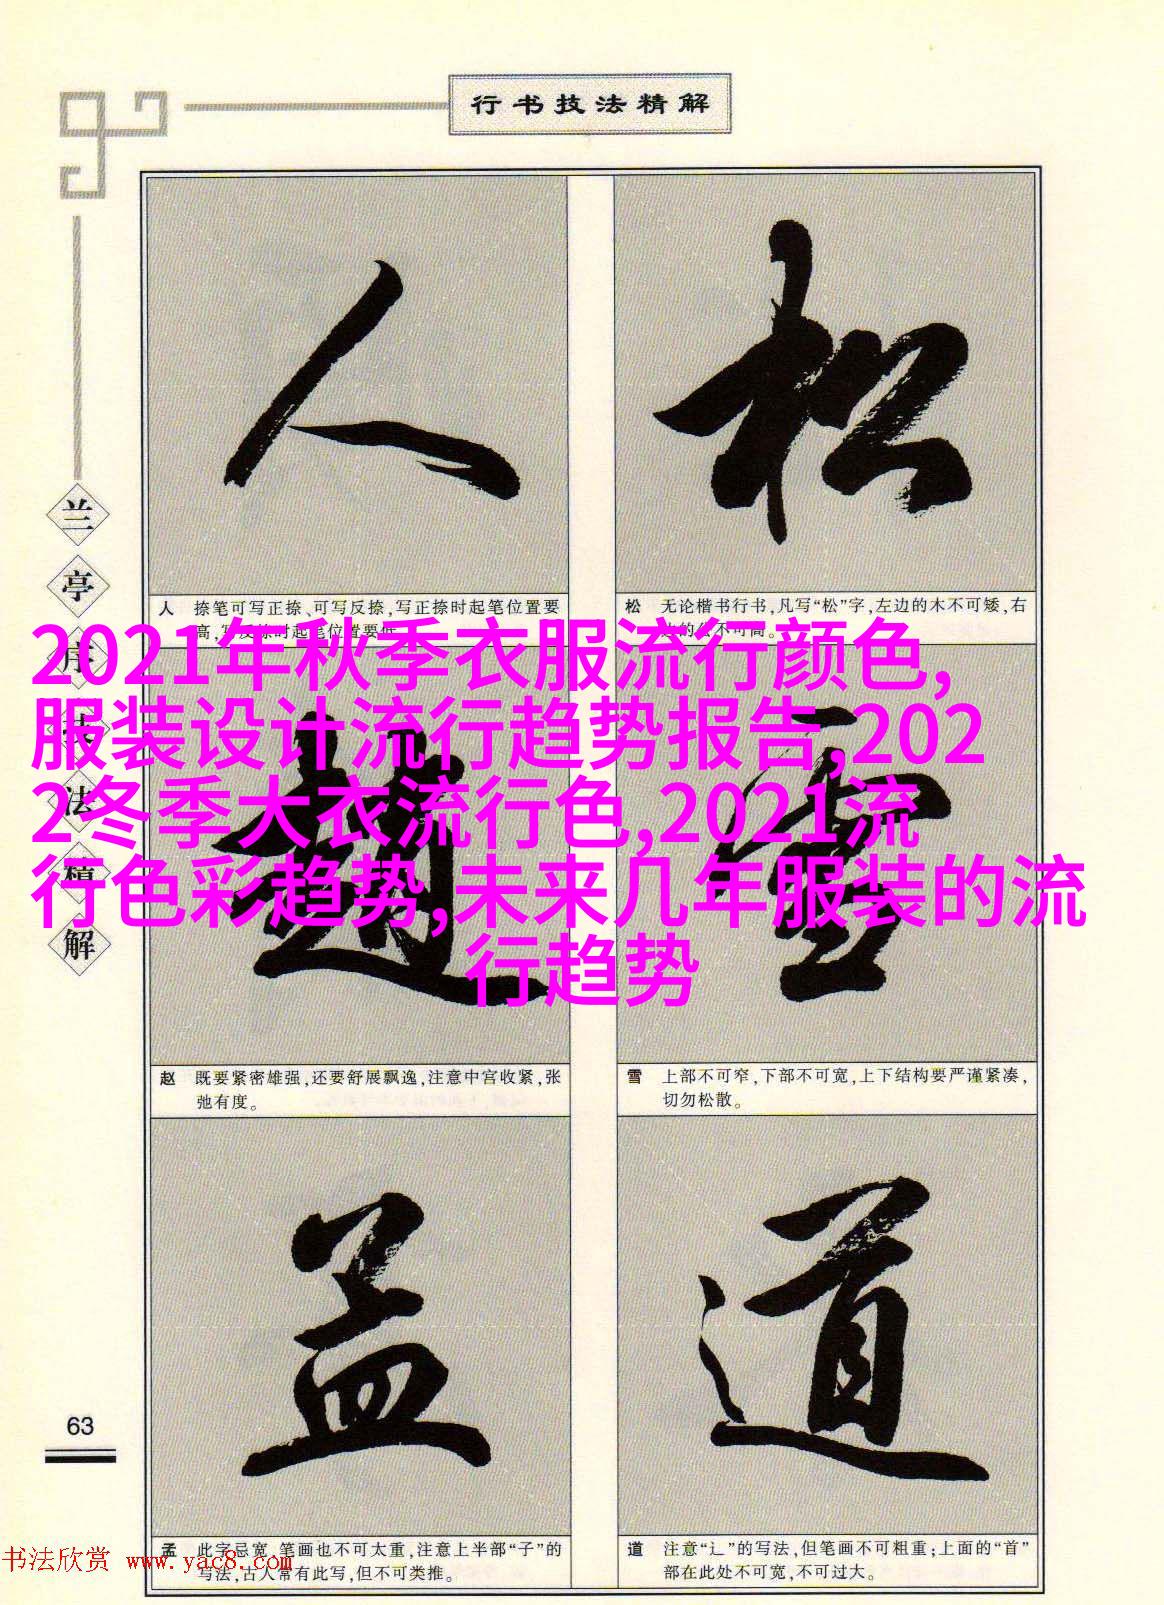 行书技法精解
兰亭序技法精解
人
松
人 捺笔可写正捺、可写反捺,写正捺时起笔位置要
高,写反捺时起笔位置要低
松 无论楷书行书,凡写“松”字,左边的木不可矮,右
边的公不可高。
2021年秋季衣服流行颜色,
服装设计流行趋势报告,202
2冬季大衣流行色,2021流
行色彩趋势,未来几年服装的流
行趋势
赵
雪
赵 既要紧密雄强,还要舒展飘逸,注意中宫收紧,张
弛有度。
雪 上部不可窄,下部不可宽,上下结构要严谨紧凑,
切勿松散。
孟
道
孟 此字忌宽,笔画也不可太重,注意上半部“子”的
写法,古人常有此写,但不可类推。
道 注意“辶”的写法,但笔画不可粗重;上面的“首”
部在此处不可宽,不可过大。
63
书法欣赏 www.yac8.com